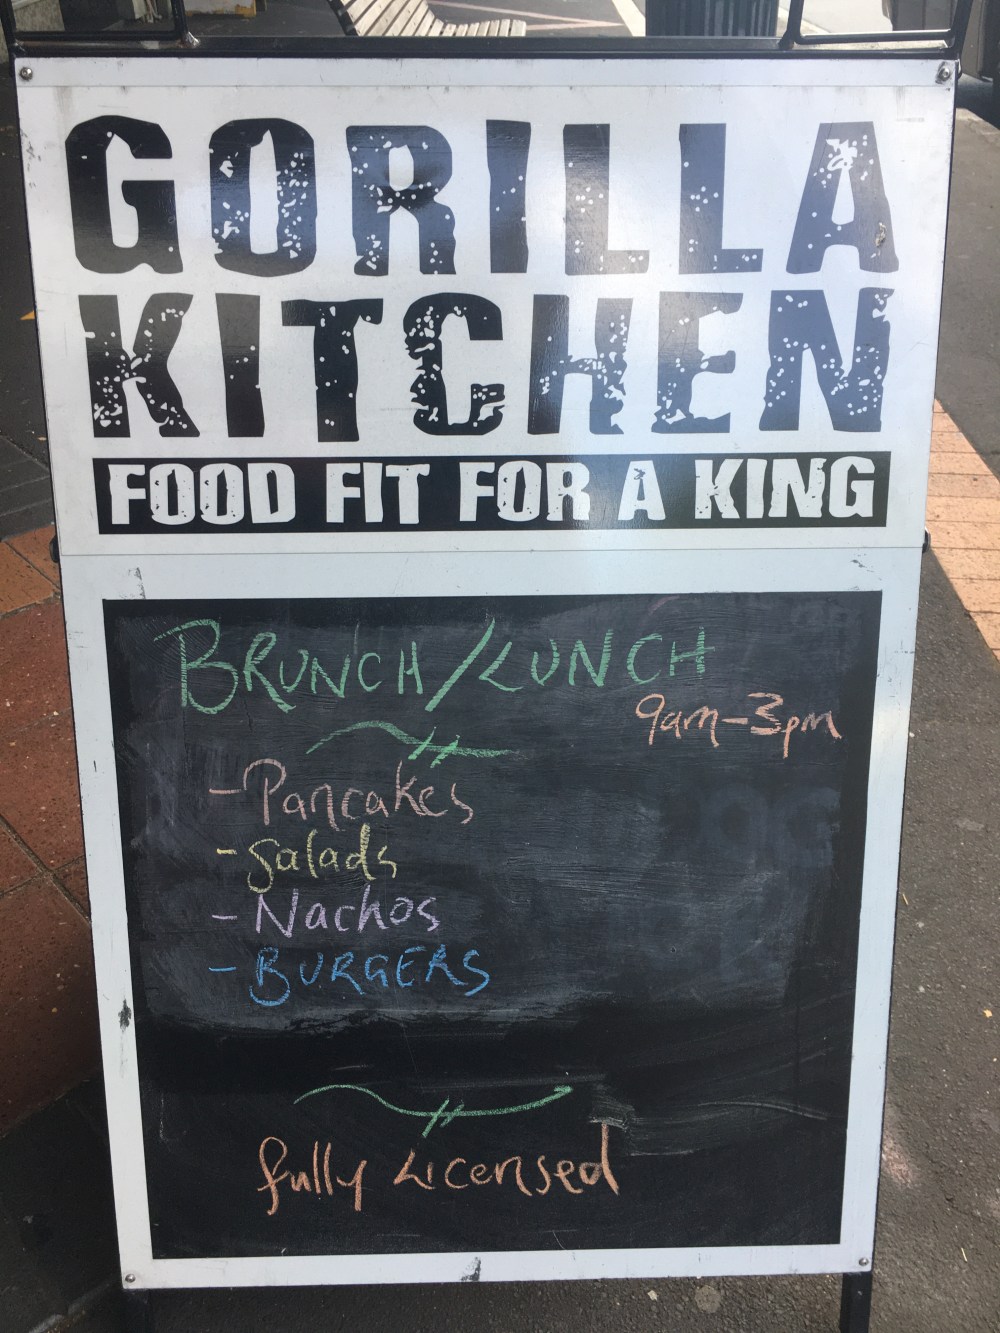 GORILLA
KITCHEN
FOOD FIT FOR A KING
BRUNCH/LUNCH
9am-3pm
- Pancakes
- Salads
- Nachos
- BURGERS
fully Licensed